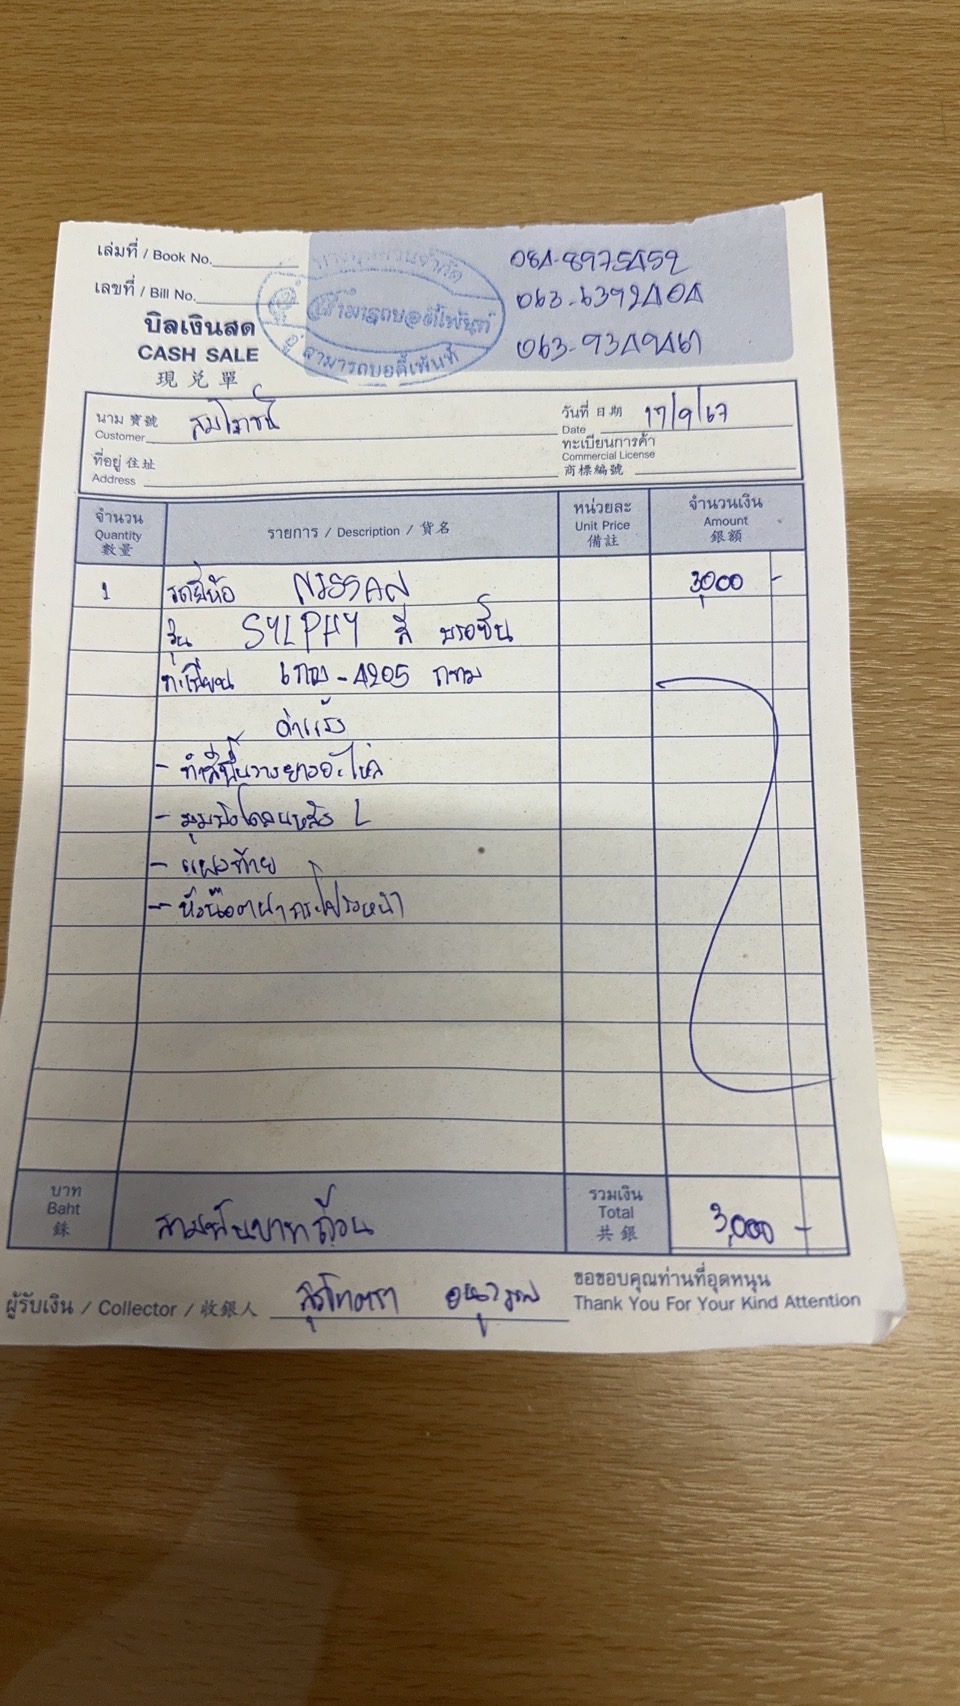 เล่มที่ / Book No.
เลขที่ / Bill No.
บิลเงินสด
CASH SALE
現兌單
สามารถบอดี้เพ้นท์
อู่ สามารถบอดี้เพ้นท์
084-8975452
063-6392404
063-9349461
นาม 寶號
Customer
วันที่ 日期 17/9/67
Date
ที่อยู่ 住址
Address
ทะเบียนการค้า
Commercial License
商標編號
จำนวน
Quantity
數量
รายการ / Description / 貨名
หน่วยละ
Unit Price
備註
จำนวนเงิน
Amount
銀額
1 รถยี่ห้อ NISSAN 3,000 -
รุ่น SYLPHY สี บรอซ์น
ทะเบียน 6กญ-4205 กทม
ค่าแรง
- ทำสีพื้นวางยางอะไหล่
- มุมบังโคลนหลัง L
- แผงท้าย
- หัวน๊อตฝากระโปรงหน้า
บาท
Baht
銖
สามพันบาทถ้วน
รวมเงิน
Total
共銀
3,000 -
ผู้รับเงิน / Collector / 收銀人
ขอขอบคุณท่านที่อุดหนุน
Thank You For Your Kind Attention